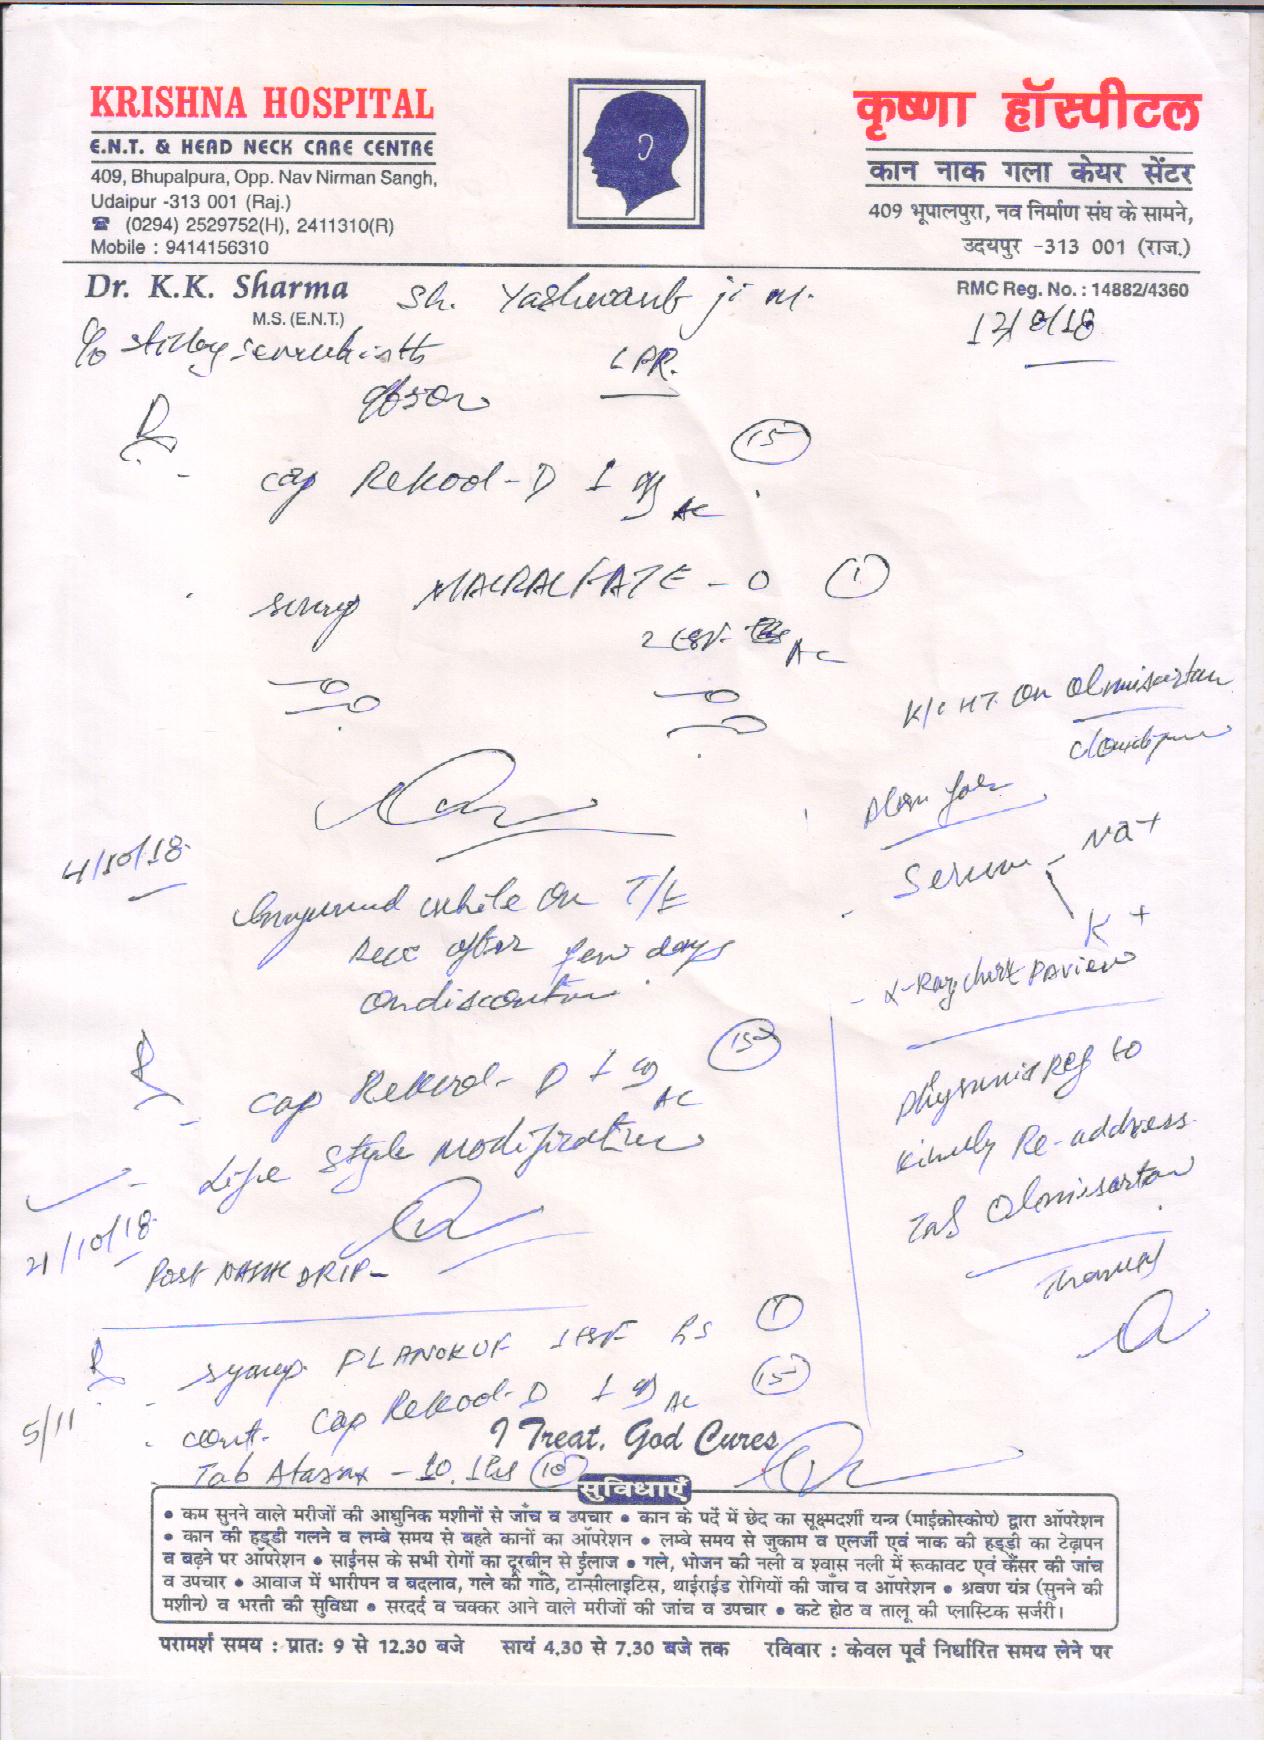 KRISHNA HOSPITAL
E.N.T. & HEAD NECK CARE CENTRE
409, Bhupalpura, Opp. Nav Nirman Sangh,
Udaipur -313 001 (Raj.)
☎ (0294) 2529752(H), 2411310(R)
Mobile : 9414156310
कृष्णा हॉस्पीटल
कान नाक गला केयर सेंटर
409 भूपालपुरा, नव निर्माण संघ के सामने,
उदयपुर -313 001 (राज.)
Dr. K.K. Sharma
M.S. (E.N.T.)
RMC Reg. No. : 14882/4360
Sh. Yashwant ji
12/8/18
LPR.
15
cap Rekool-D 1 AC
syrup MACRALFATE - O 1
2 tsf AC
K/C HT. on Olmisartan
Serum - Na+
K+
- X-Ray chest PA view
4/10/18
while on T/t
after few days
on
15
cap Rekool-D 1 AC
- Life style modification
Ref to
kindly Re-address
Tab Olmisartan
21/10/18
Post NASAL DRIP -
syrup PLANOKUF 1 tsf hs 1
5/11
cont. cap Rekool-D 1 AC 15
Tab - 10. 1 hs 10
I Treat, God Cures
सुविधाएँ
• कम सुनने वाले मरीजों की आधुनिक मशीनों से जाँच व उपचार • कान के पर्दे में छेद का सूक्ष्मदर्शी यन्त्र (माईक्रोस्कोप) द्वारा ऑपरेशन
• कान की हड्डी गलने व लम्बे समय से बहते कानों का ऑपरेशन • लम्बे समय से जुकाम व एलर्जी एवं नाक की हड्डी का टेढ़ापन
व बढ़ने पर ऑपरेशन • साईनस के सभी रोगों का दूरबीन से ईलाज • गले, भोजन की नली व श्वास नली में रूकावट एवं कैंसर की जांच
व उपचार • आवाज में भारीपन व बदलाव, गले की गाँठे, टॉन्सीलाइटिस, थाईराईड रोगियों की जाँच व ऑपरेशन • श्रवण यंत्र (सुनने की
मशीन) व भरती की सुविधा • सरदर्द व चक्कर आने वाले मरीजों की जांच व उपचार • कटे होठ व तालू की प्लास्टिक सर्जरी।
परामर्श समय : प्रातः 9 से 12.30 बजे सायं 4.30 से 7.30 बजे तक रविवार : केवल पूर्व निर्धारित समय लेने पर